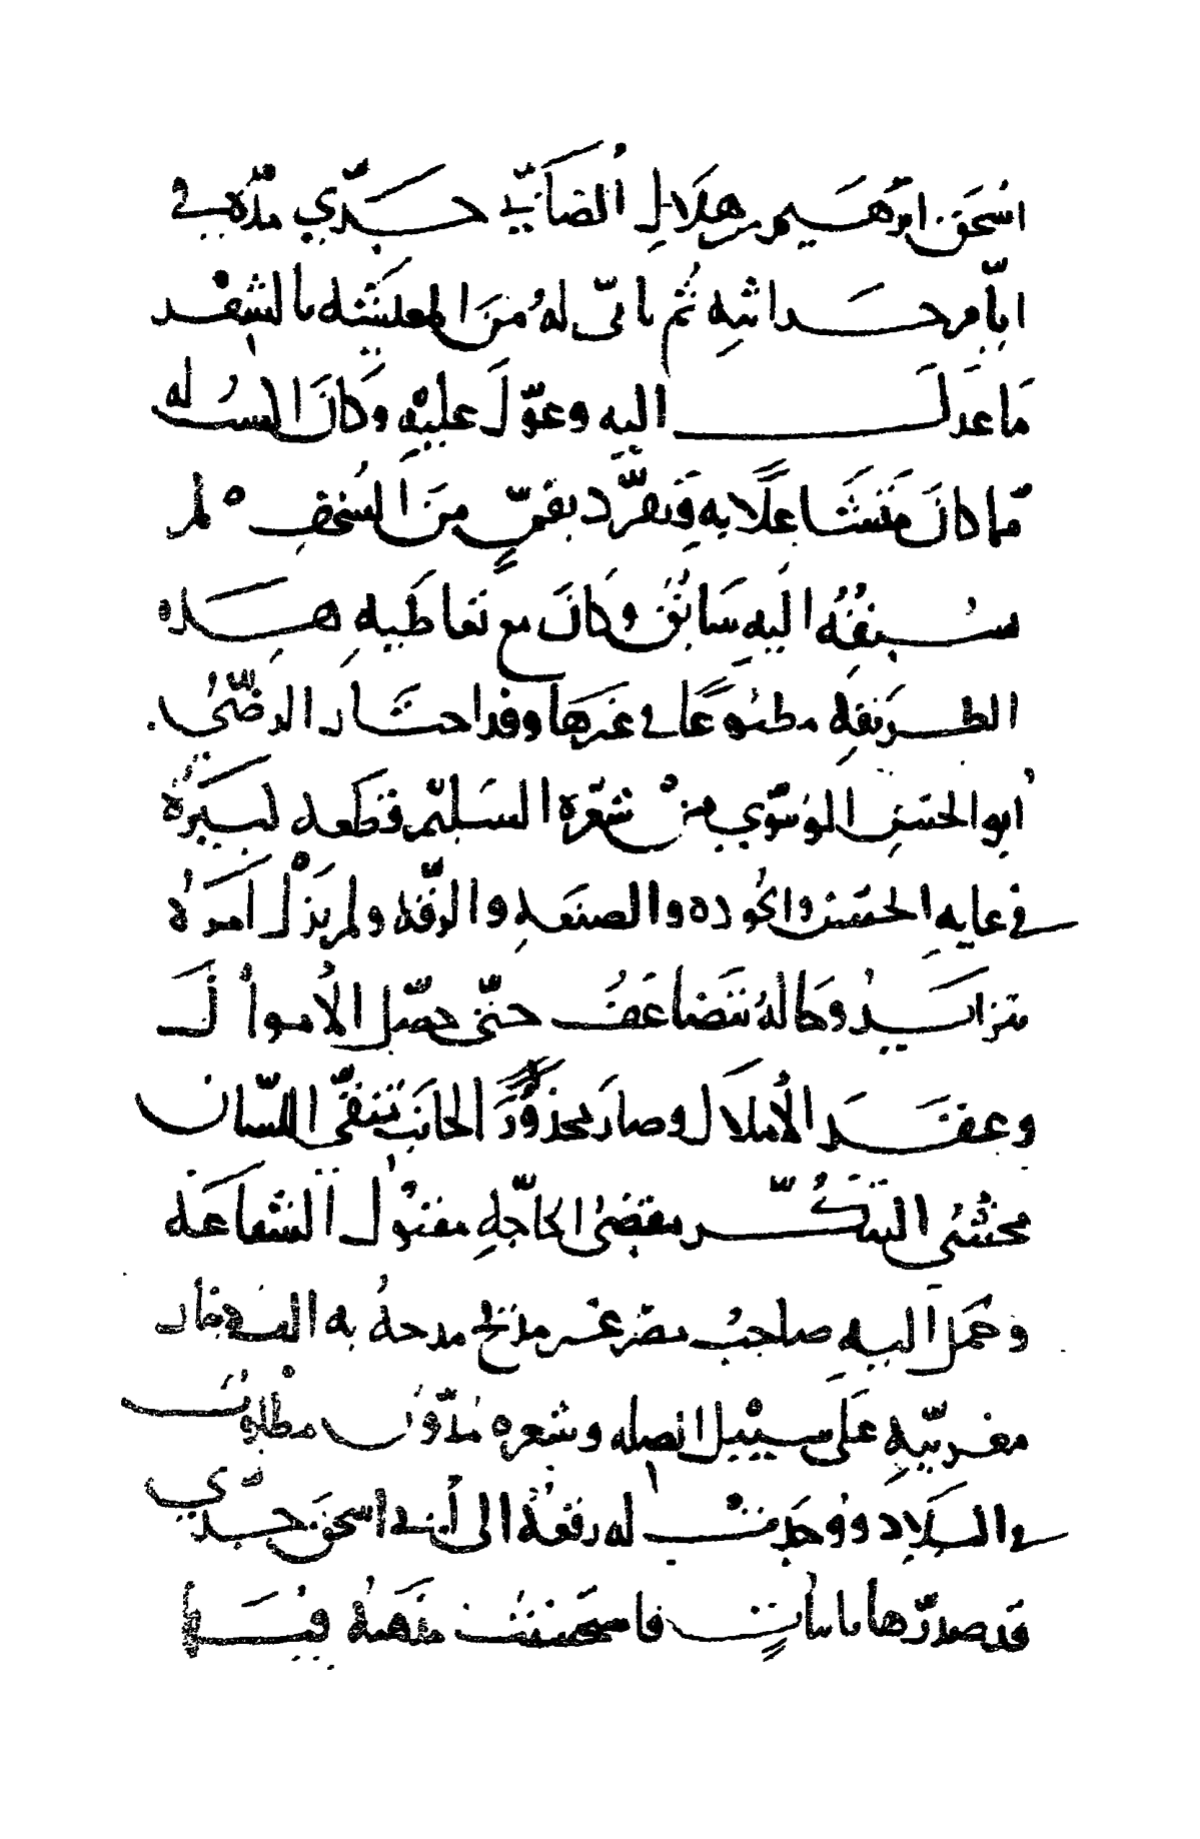 اسحق ابرهيم بن هلال الصابي جدّي مدّه في
ايّام حداثته ثم تاتّى له من المعيشه بالشعر
ما عدل اليه وعوّل عليه وكان السبب له
ممّا كان متشاغلًا به وتفرّد بفنٍّ من السخف لم
يسبقه اليه سابق وكان مع تعاطيه هذه
الطريقه مطبوعًا في غيرها وقد اختار الرضيّ
ابو الحسن الموسوي من شعره السليم قطعه كبيره
في غايه الحسن والجوده والصنعه والرقّه ولم يزل امره
يتزايد وحاله تتضاعف حتّى حصّل الاموال
وعقد الاملاك وصار محذور الجانب متّقى اللسان
مخشي التنكّر مقضيّ الحاجه مقبول الشفاعه
وحمل اليه صاحب مصر عن مديح مدحه به الف دينار
مغربيّه على سبيل الصله وشعره مدوّن مطلوب
في البلاد ووجدت له رقعه الى أبي اسحق جدّي
قد صدّرها بابيات فاستحسنت مذهبه فيها